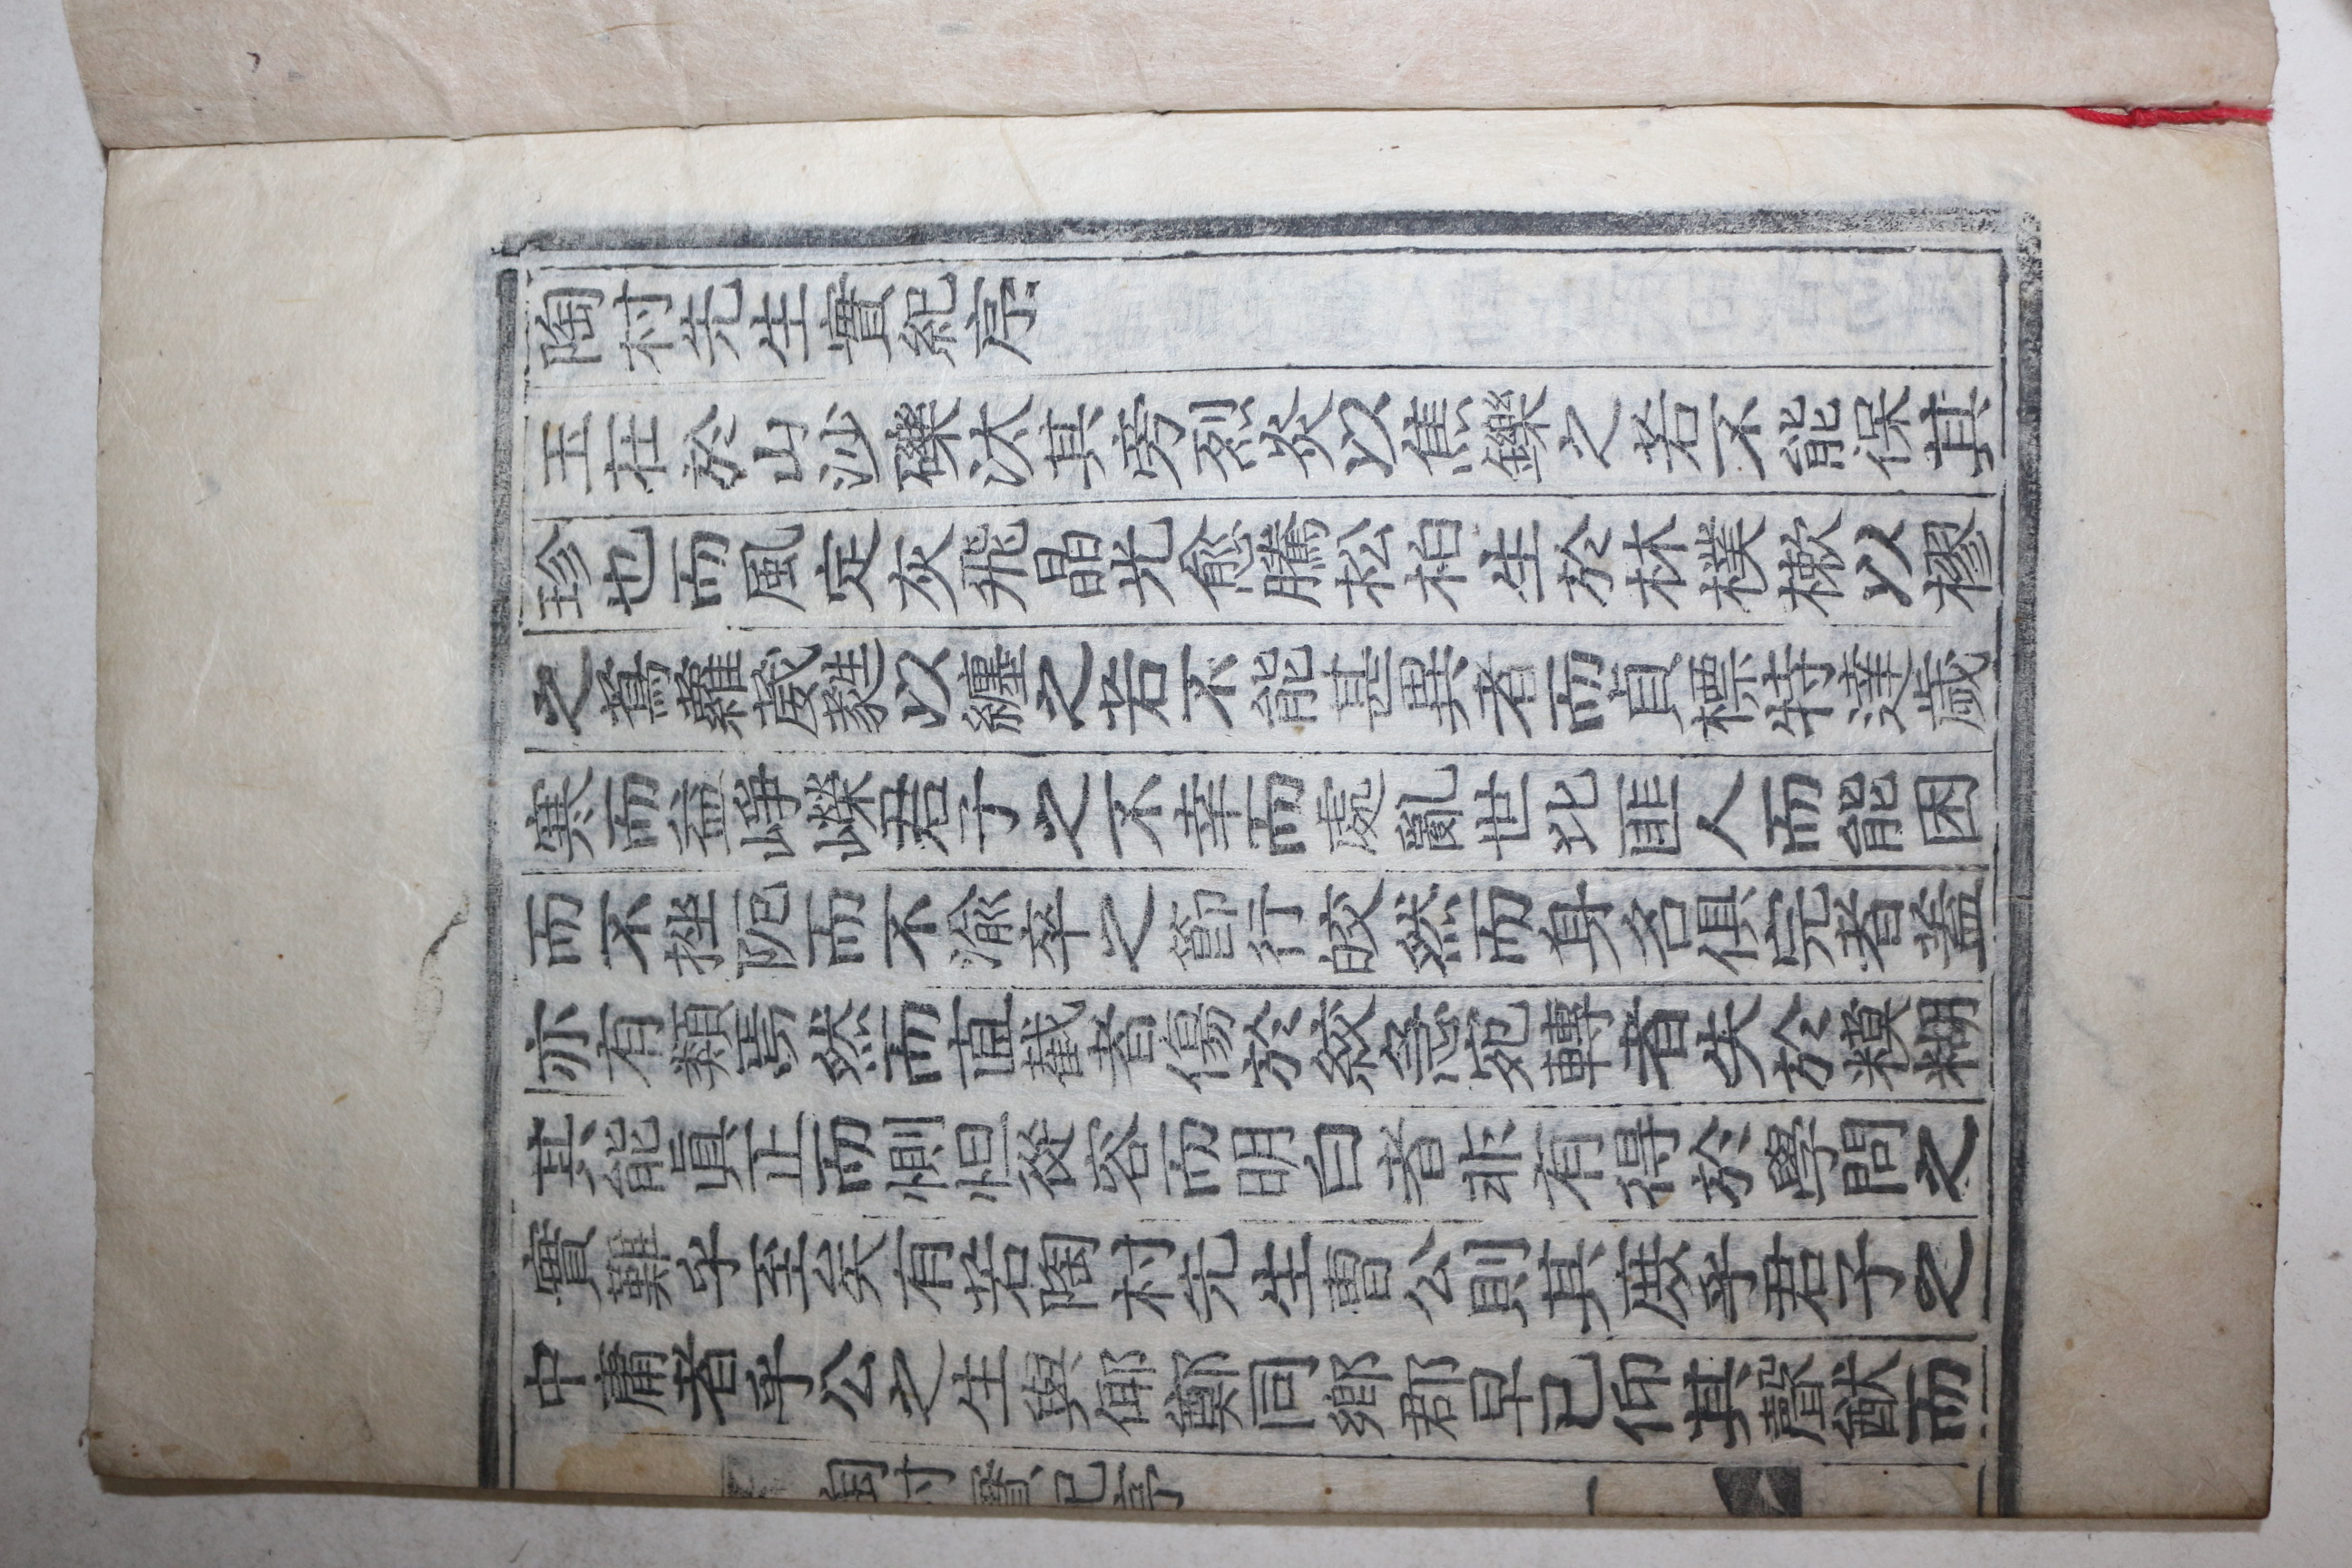 陶村先生實紀序
玉在於山沙礫汰其旁烈炎以焦鑠之若不能保其
珍也而風定灰飛晶光愈騰松柏生於林樸樕以樛
之蔦蘿葳蕤以纏之若不能甚異者而貞標特達歲
寒而益崢嶸君子之不幸而處亂世比匪人而能困
而不挫阨而不渝卒之節行皎然而身名俱完者蓋
亦有類焉然而直截者傷於絞急宛轉者失於糢糊
其能眞正而惻怛從容而明白者非有得於學問之
實難乎至矣有若陶村先生曺公則其庶乎君子之
中庸者乎公之生與鄭同鄉郡早已仰其聲猷而
陶村實紀序 一